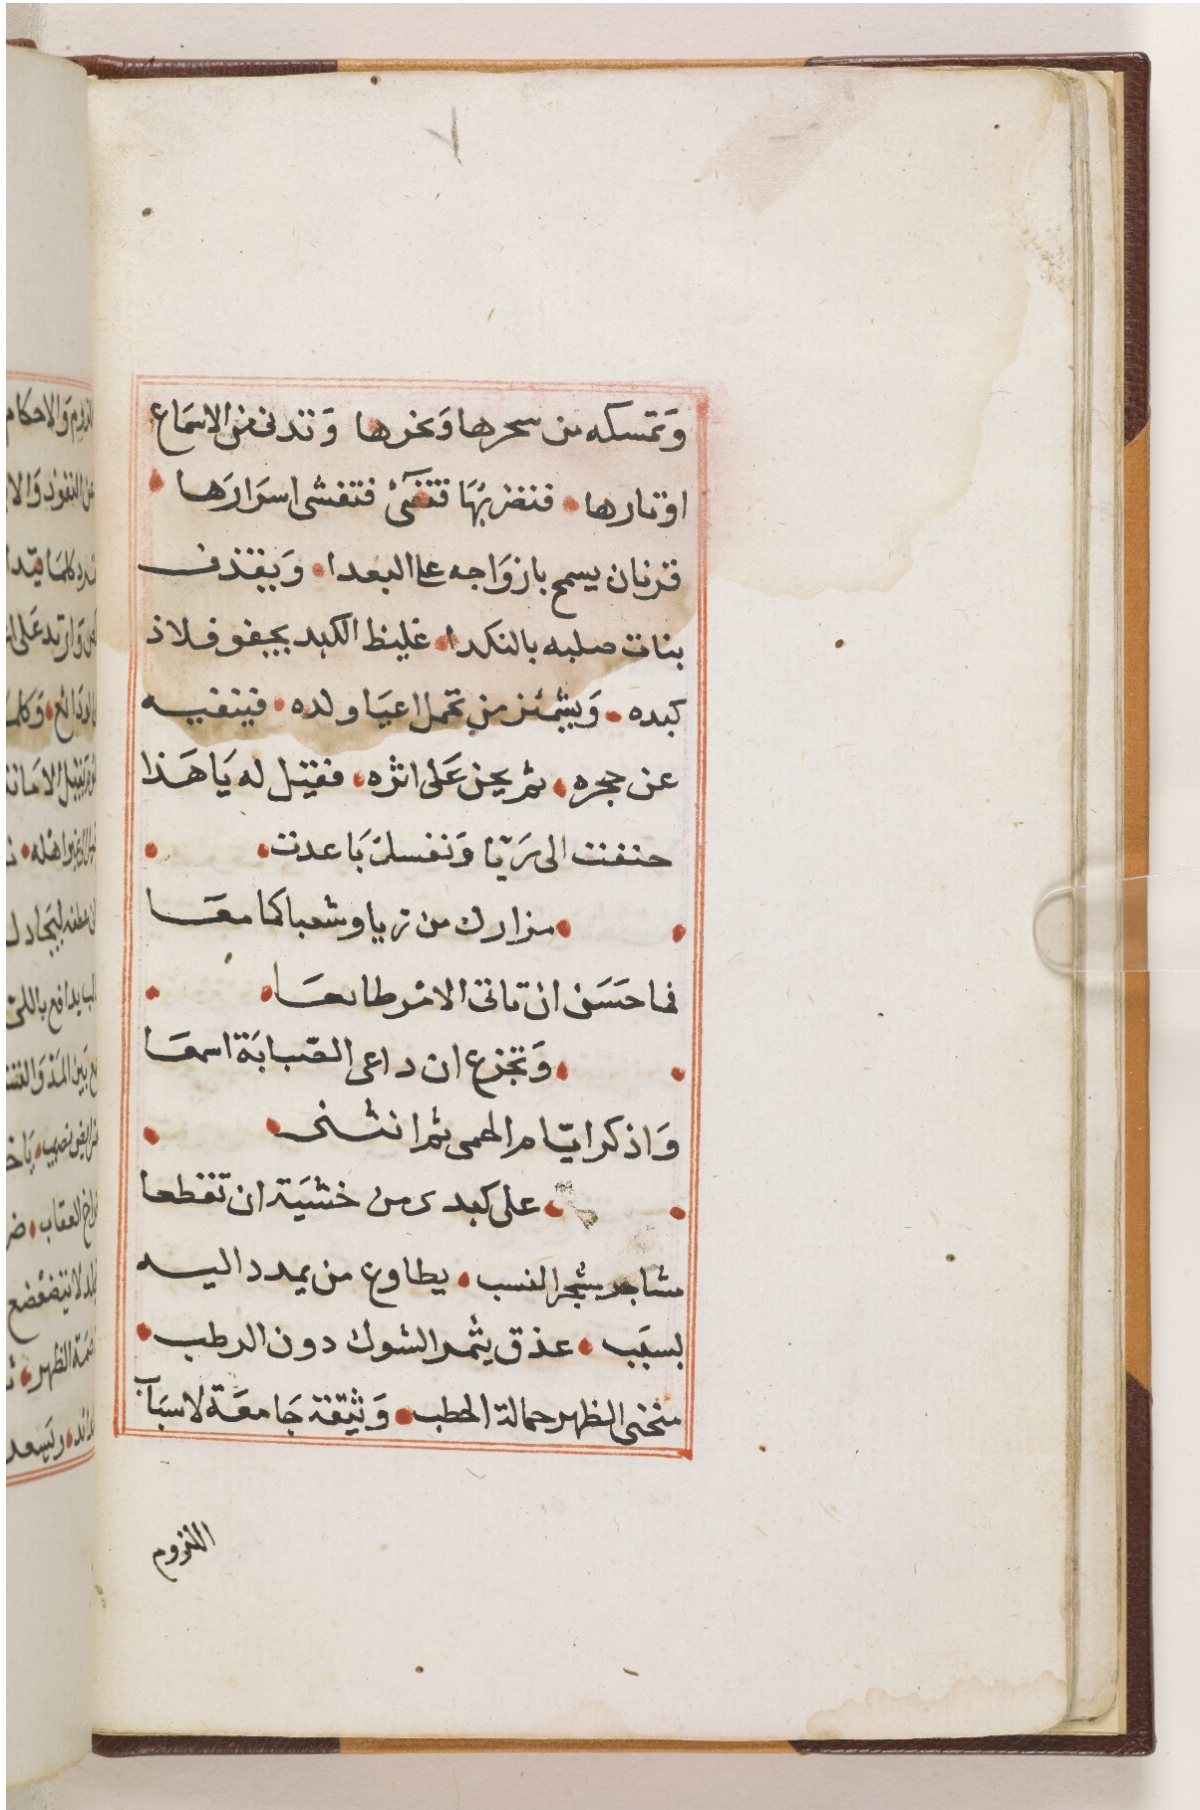 وَتمسكه من سحرها وَنحرها وَتدنى من الاسمَاع
اوتارها • فتضربُهَا فتفئ فتفشى اسرَارَها •
قرنان يسمح بازوَاجه على البعدا • وَيقذف
بنات صلبه بالنكدا • غليظ الكبد يجفو فلاذ
كبده • وَيشمئز من تحمل اعيَا ولده • فينفيه
عن حجره • ثم يحن عَلى اثره • فقيل له يَا هَذا
حننت الى رَيّا وَنفسك بَاعدت •
• مزارك من ريا وشعباكما معَا
فما حسَن ان تاتى الامر طايعَا •
• وَتجزع ان داعى الصّبابَة اسمعَا
وَاذكر ايّام الحمى ثم انثنى •
• على كبدى من خشيَة ان تقطعا
مشاجر بشجر النسب • يطاوع من يمدد اليه
بسبَب • عذق يثمر الشوك دون الرطب •
منحنى الظهر حمالة الحطب • وَثيقة جَامعَة لاسبَاب
اللزوم